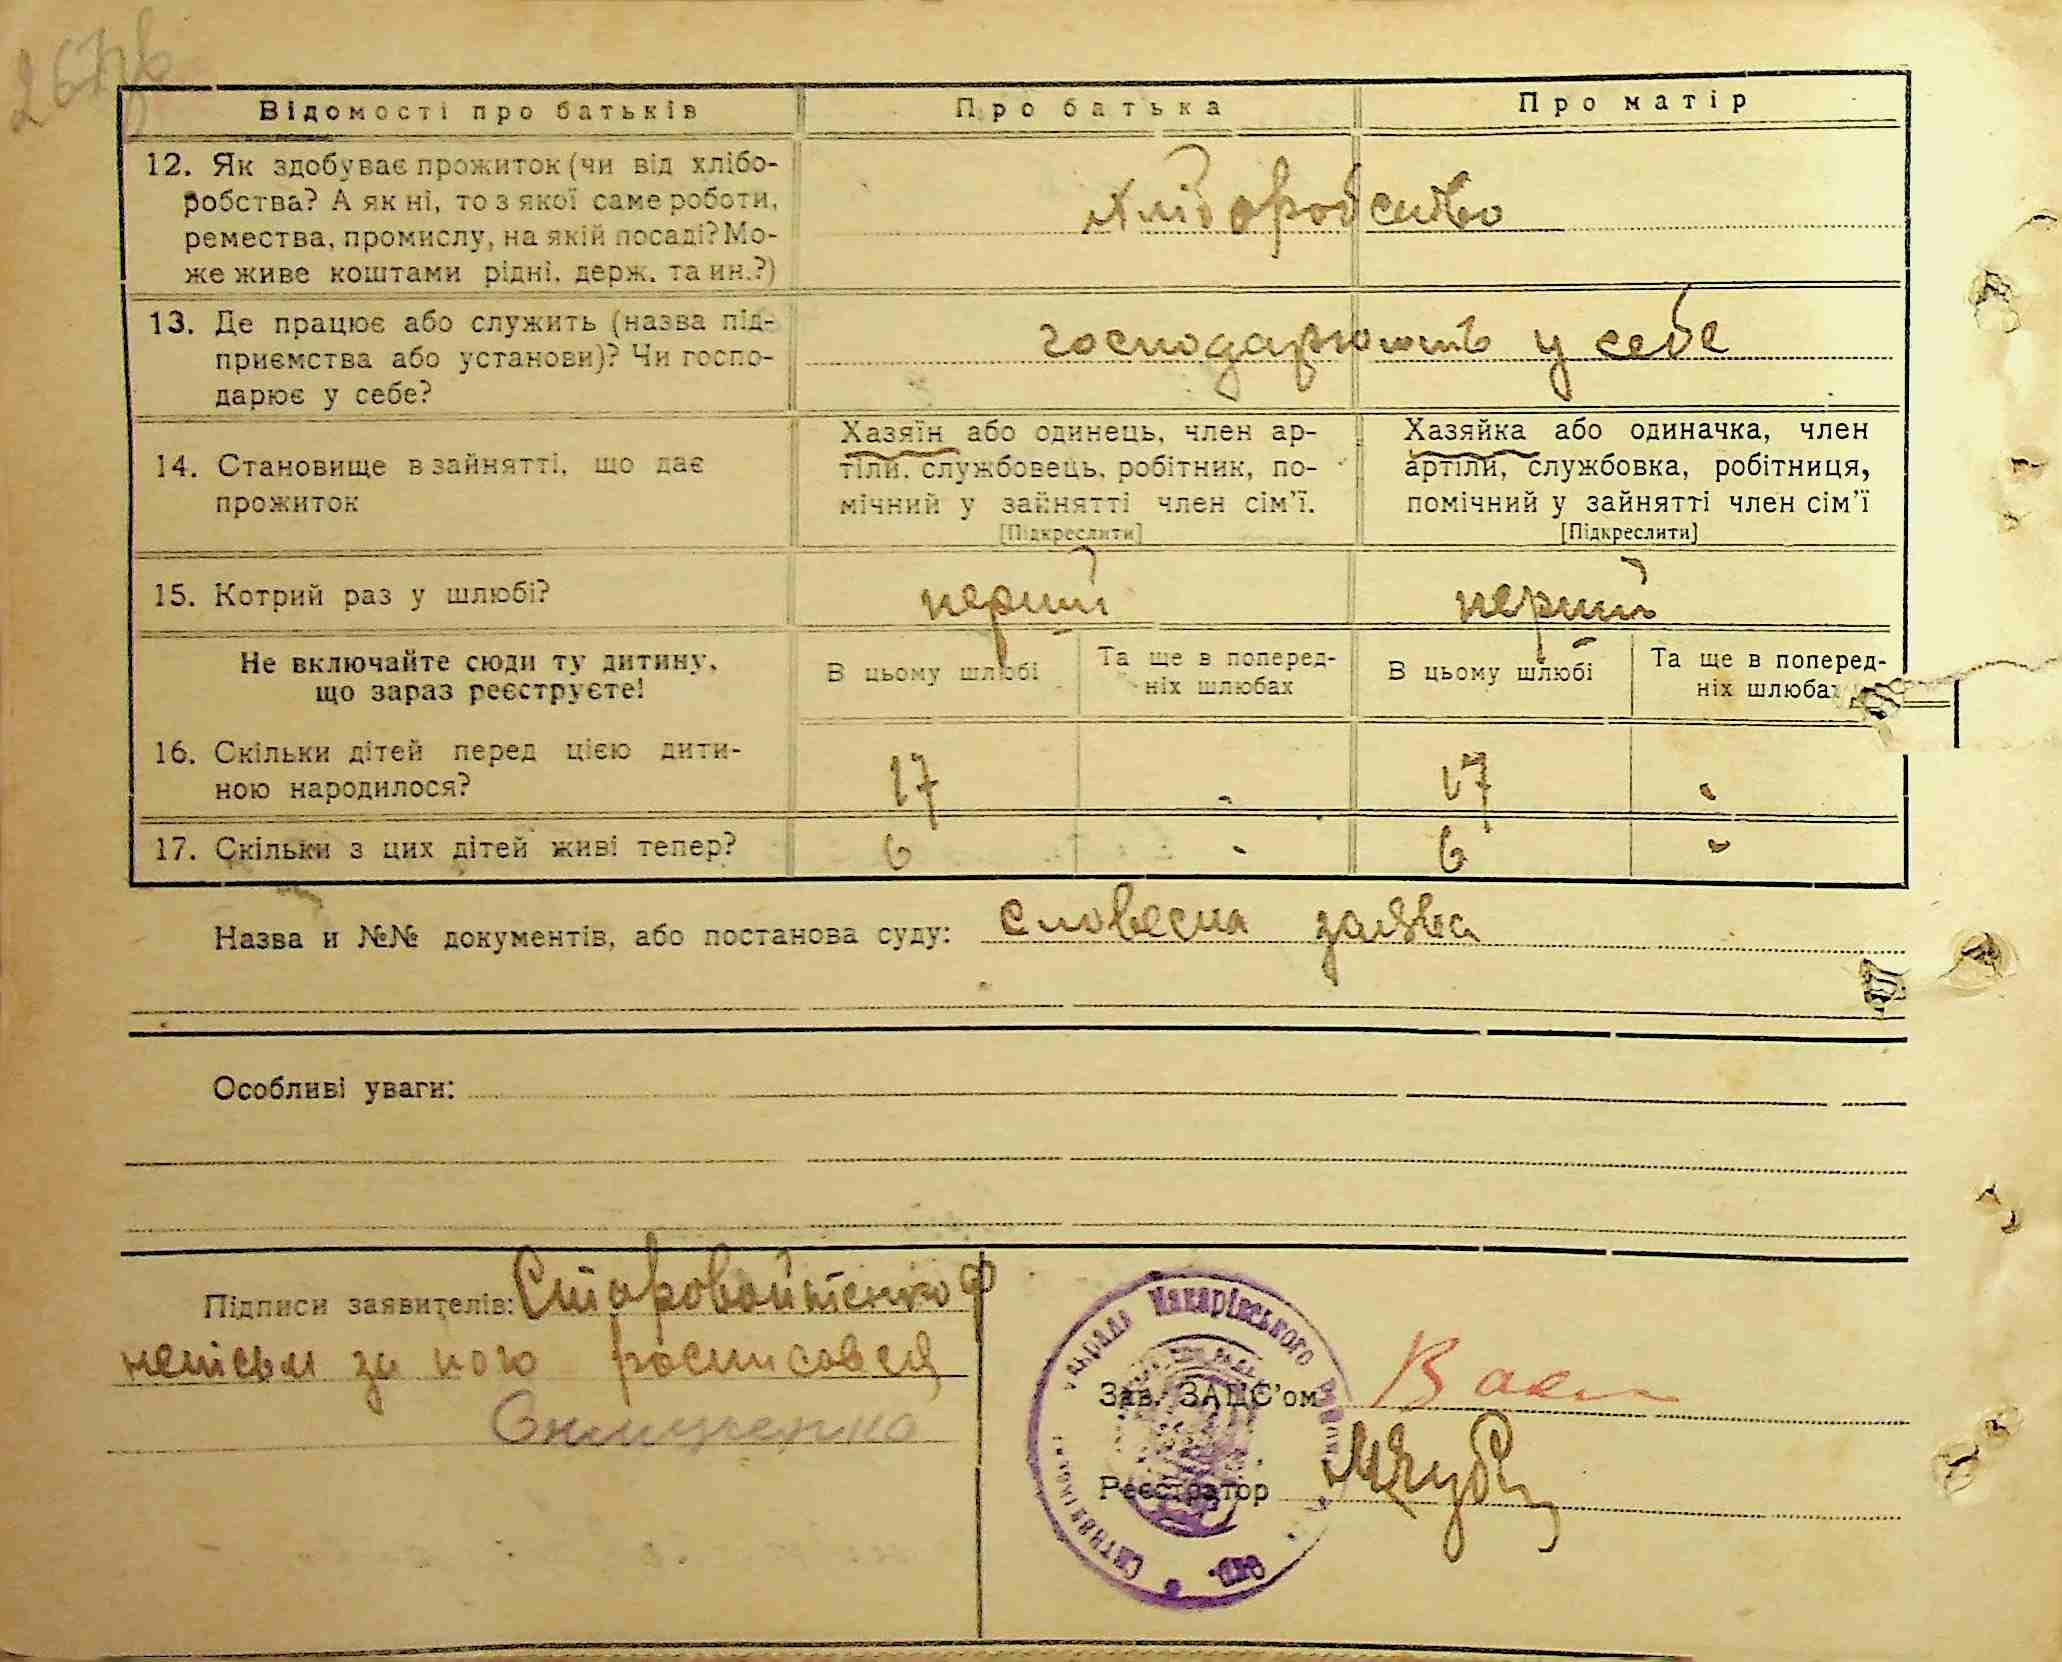 Відомості про батьків
Про батька
Про матір
12. Як здобуває прожиток (чи від хлібо-
робства? А як ні, то з якої саме роботи,
ремества, промислу, на якій посаді? Мо-
же живе коштами рідні, держ. та ин.?)
хліборобство
13. Де працює або служить (назва під-
приємства або установи)? Чи госпо-
дарює у себе?
господарюють у себе
14. Становище в зайнятті, що дає
прожиток
Хазяїн або одинець, член ар-
тіли, службовець, робітник, по-
мічний у зайнятті член сім'ї.
[Підкреслити]
Хазяйка або одиначка, член
артіли, службовка, робітниця,
помічний у зайнятті член сім'ї
[Підкреслити]
15. Котрий раз у шлюбі?
перший
перший
Не включайте сюди ту дитину,
що зараз реєструєте!
В цьому шлюбі
Та ще в поперед-
ніх шлюбах
В цьому шлюбі
Та ще в поперед-
ніх шлюбах
16. Скільки дітей перед цією дити-
ною народилося?
17 - 17 -
17. Скільки з цих дітей живі тепер?
6 - 6 -
Назва и №№ документів, або постанова суду: словесна заява
Особливі уваги:
Підписи заявителів: Старовойтенко Ф
неписьм за його росписався
Зав. ЗАЦС'ом
Реєстратор
Макарівського